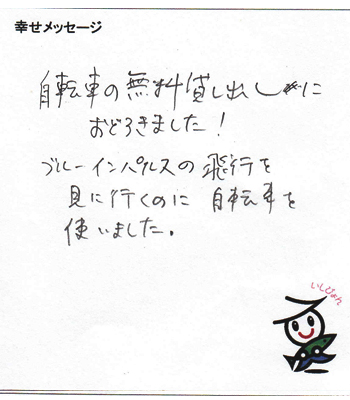 幸せメッセージ
自転車の無料貸し出しに
おどろきました!
ブルーインパルスの飛行を
見に行くのに 自転車を
使いました。
いしぴょん